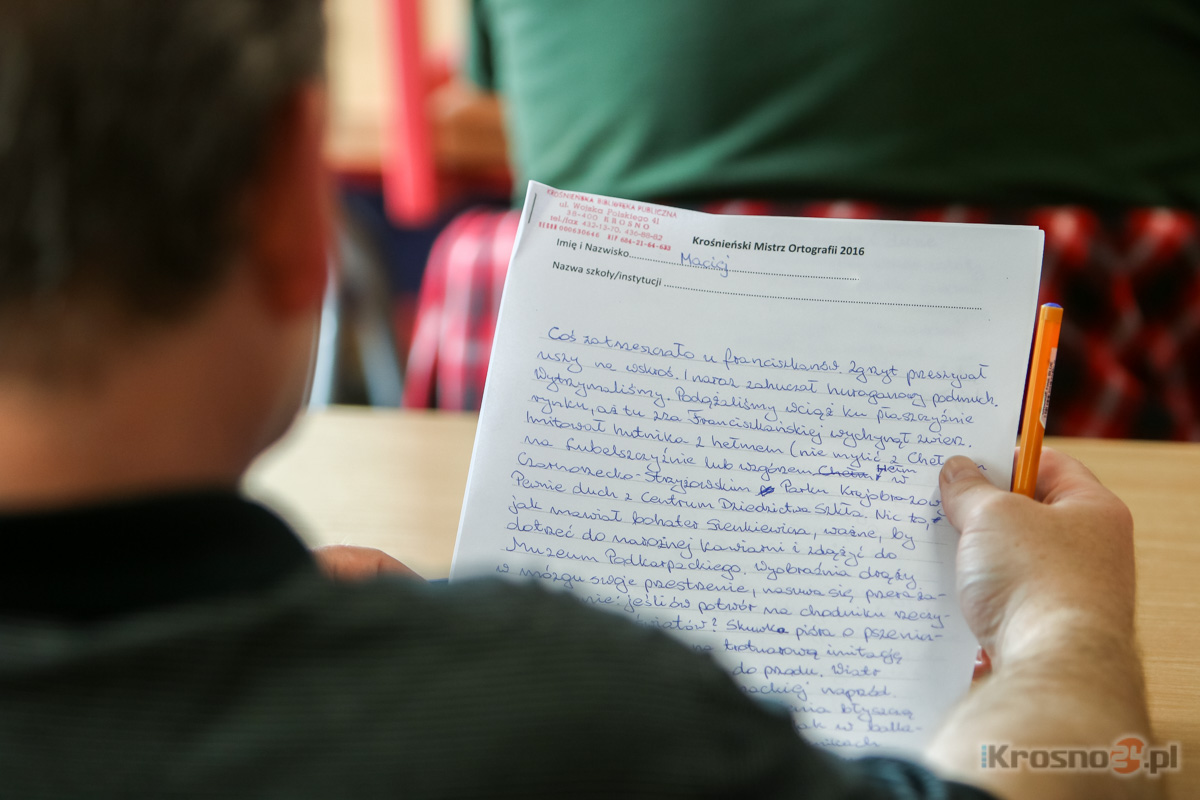 KROŚNIEŃSKA BIBLIOTEKA PUBLICZNA
ul. Wojska Polskiego 41
38-400 KROSNO
Krośnieński Mistrz Ortografii 2016
Imię i Nazwisko Maciej
Nazwa szkoły/instytucji
Coś zatrzeszczało u franciszkanów. Zgrzyt przeszywał
uszy na wskroś. I naraz zahuczał huraganowy podmuch.
Wytrzymaliśmy. Podążaliśmy wciąż ku płaszczyźnie
rynku, aż tu zza Franciszkańskiej wychynął zwierz.
Imitował hutnika z hełmem (nie mylić z
na Lubelszczyźnie lub wzgórzem Chełm w
Czarnorzecko-Strzyżowskim Parku Krajobrazowy
Pewnie duch z Centrum Dziedzictwa Szkła. Nic to,
jak mawiał bohater Sienkiewicza, ważne, by
dotrzeć do narożnej kawiarni i zdążyć do
Muzeum Podkarpackiego. Wyobraźnia drąży
w mózgu swoje przestrzenie, nasuwa się przeraża-
nie: jeśli ów potwór na chodniku rzeczy-
światów? Skuwka pióra o pszenicz-
trotuarową imitację
do przodu. Wiatr
napaść
błyszczą
jak w
iKrosno24.pl